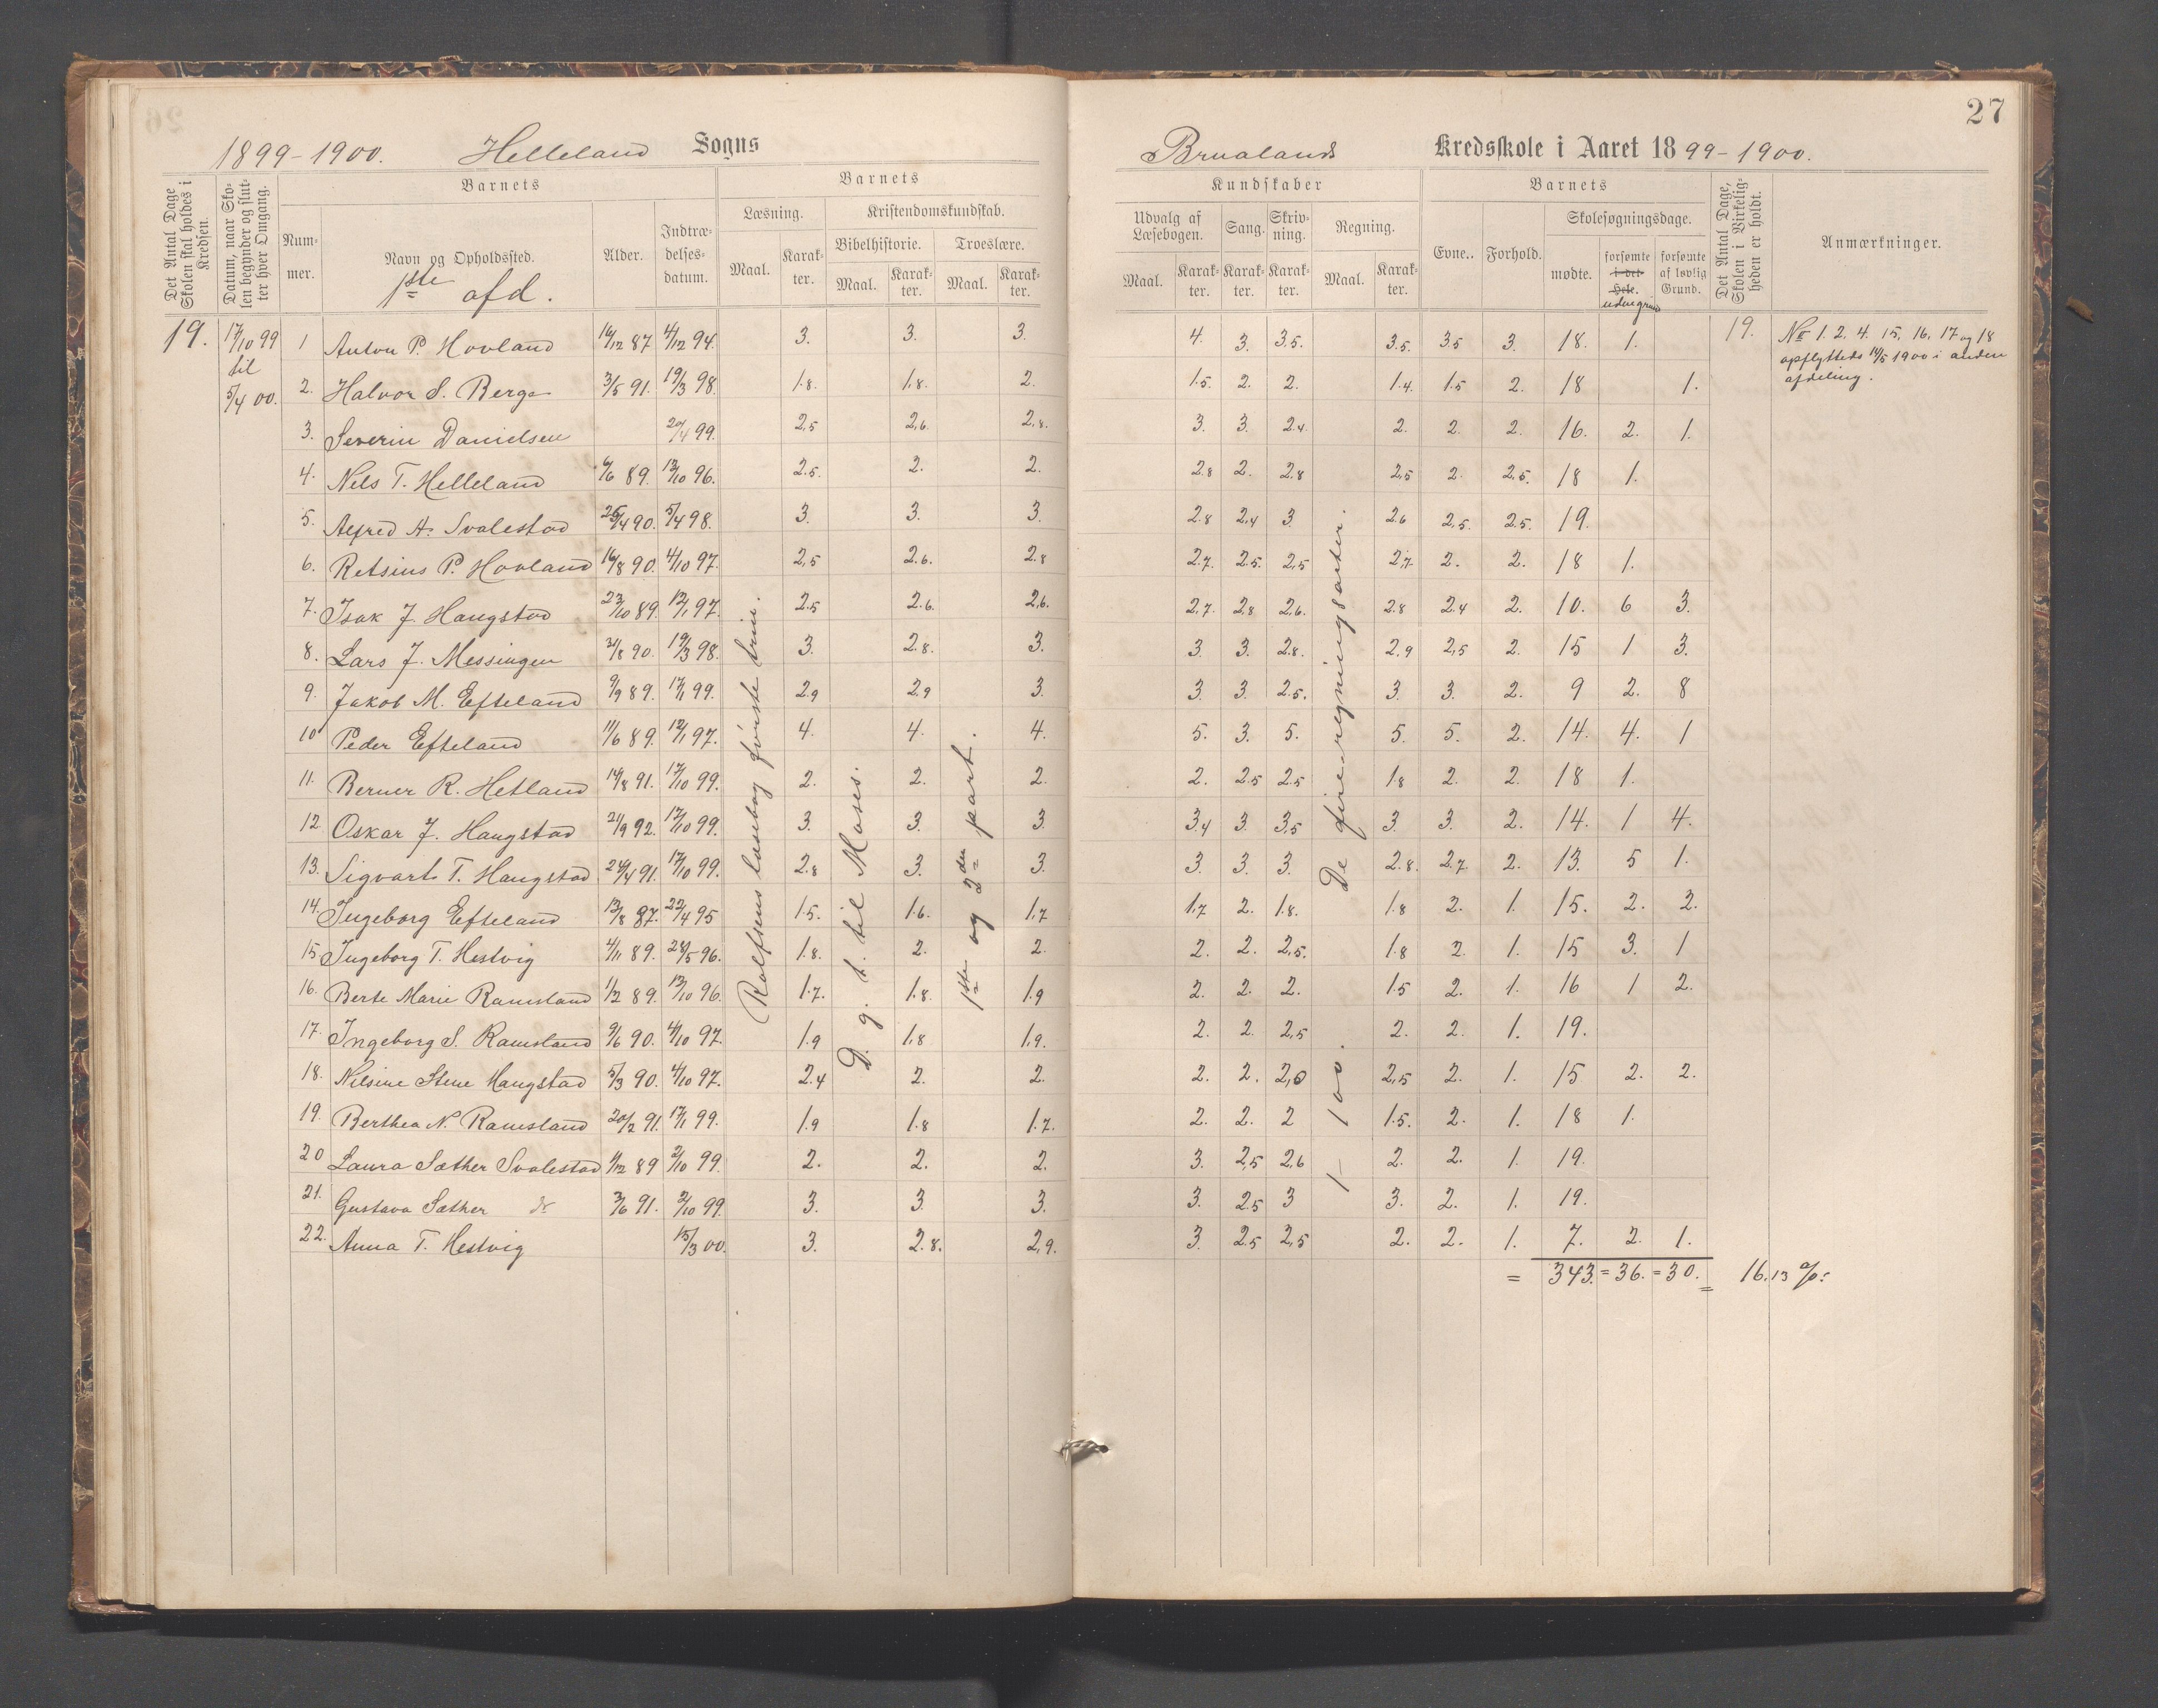 27
1899-1900. Helleland Sogns
Brualands Kredsskole i Aaret 1899-1900.
Det Antal Dage Skolen skal holdes i Kredsen.
Datum, naar Skolen begynder og slutter hver Omgang.
Barnets
Nummer.
Navn og Opholdssted.
1ste afd.
Alder.
Indtrædelsesdatum.
Barnets
Læsning.
Maal.
Karakter.
Kristendomskundskab.
Bibelhistorie.
Maal.
Karakter.
Troeslære.
Maal.
Karakter.
Kundskaber
Udvalg af Læsebogen.
Maal.
Karakter.
Sang.
Karakter.
Skrivning.
Karakter.
Regning.
Maal.
Karakter.
Barnets
Evne..
Forhold.
Skolesøgningsdage.
mødte.
forsømte i det Hele.
uden grund
forsømte af lovlig Grund.
Det Antal Dage, Skolen i Virkeligheden er holdt.
Anmærkninger.
19. 17/10 99 til 5/4 00.
1 Anton P. Hovland 16/12 87 4/12 94. 3. 3. 3. 4. 3. 3.5. 3.5. 3.5 3. 18. 1. 19.
2. Halvor S. Berge 3/5 91. 19/3 98. 1.8. 1.8. 2. 1.5. 2. 2. 1.4. 1.5 2. 18 1.
3. Severin Danielsen 20/4 99. 2,5 2,6. 2,8. 3. 3. 2.4. 2. 2. 2. 16. 2. 1.
4. Nels T. Helleland 6/6 89. 13/10 96. 2.5. 2. 2. 2.8 2. 2.8 2,5 2. 2,5. 18 1.
5. Alfred A. Svalestad 26/4 90. 5/4 98. 3. 3. 3. 2.8 2,4 3. 2.6 2,5. 2.5. 19.
6. Retsius P. Hovland 16/8 90. 4/10 97. 2,5 2.6. 2.8 2.7. 2.5. 2,5 2,7. 2. 2. 18 1.
7. Isak J. Haugstad 23/10 89. 12/1 97. 2.5 2.6. 2,6. 2,7. 2,8 2,6. 2.8 2.4 2. 10. 6 3.
8. Lars J. Messingen 21/8 90. 19/3 98. 3. 2.8. 3. 3. 3. 2.8. 2.9 2,5 2. 15 1 3.
9. Jakob M. Efteland 9/9 89. 17/1 99. 2.9 2.9 3. 3. 3. 2.5. 3. 3. 2. 9 2. 8
10 Peder Efteland 11/6 89. 12/1 97. 4. 4. 4. 5. 3. 5. 5. 5. 2. 14. 4. 1
11. Berner R. Hetland 14/8 91. 17/10 99. 2. 2. 2. 2. 2.5 2.5 1.8 2. 2. 18 1.
12 Oskar J. Haugstad 21/9 92. 17/10 99. 3. 3. 3. 3.4 3. 3.5 3. 3. 2. 14. 1 4.
13. Sigvart T. Haugstad 24/4 91. 17/10 99. 2.8 3. 3. 3. 3. 3. 2.8. 2.7. 2. 13. 5 1.
14. Ingeborg Efteland 13/8 87. 22/4 95 1.5. 1.6. 1,7 1,7 2. 1.8. 1.8 2. 1. 15. 2. 2.
15 Ingeborg T. Hestvig 4/11 89. 28/5 96. 1.8. 2. 2. 2. 2. 2,5. 1.8 2. 1. 15 3. 1
16. Berte Marie Ramsland 1/2 89. 13/10 96. 1.7. 1.8. 1.9 2. 2. 2. 1.5 2. 1. 16 1 2.
17. Ingeborg S. Ramsland 9/6 90. 4/10 97. 1.9 1,8 1,9. 2. 2. 2,5 2. 2. 1. 19.
18. Nilsine Stene Haugstad 5/3 90. 4/10 97. 2.4 2. 2. 2. 2. 2,0 2,5 2. 1. 15 2. 2.
19. Berthea N. Ramsland 20/2 91. 17/1 99. 1.9 1.8 1.7. 2. 2. 2 1.5. 2. 1. 18 1.
20 Laura Sæther Svalestad 1/12 89 2/10 99. 2. 2. 2. 3. 2,5 2,6 2. 2. 1. 19.
21. Gustava Sæther do 3/6 91. 2/10 99. 3. 3. 3. 3. 2.5 3 3. 2. 1. 19.
22. Anna T. Hestvig 15/3 00. 3. 2.8. 2,9. 3. 2.5 2,5 2. 2. 1. 7. 2. 1.
= 343. = 36. = 30. = 16.13 %:
Rolfsens læsebog første trin.
D. g. t. til Moses.
1ste og 2den part.
De fire regningsarter. 1-100.
No 1. 2. 4. 15, 16, 17 og 18
opflyttedes 14/5 1900 i anden
afdeling.